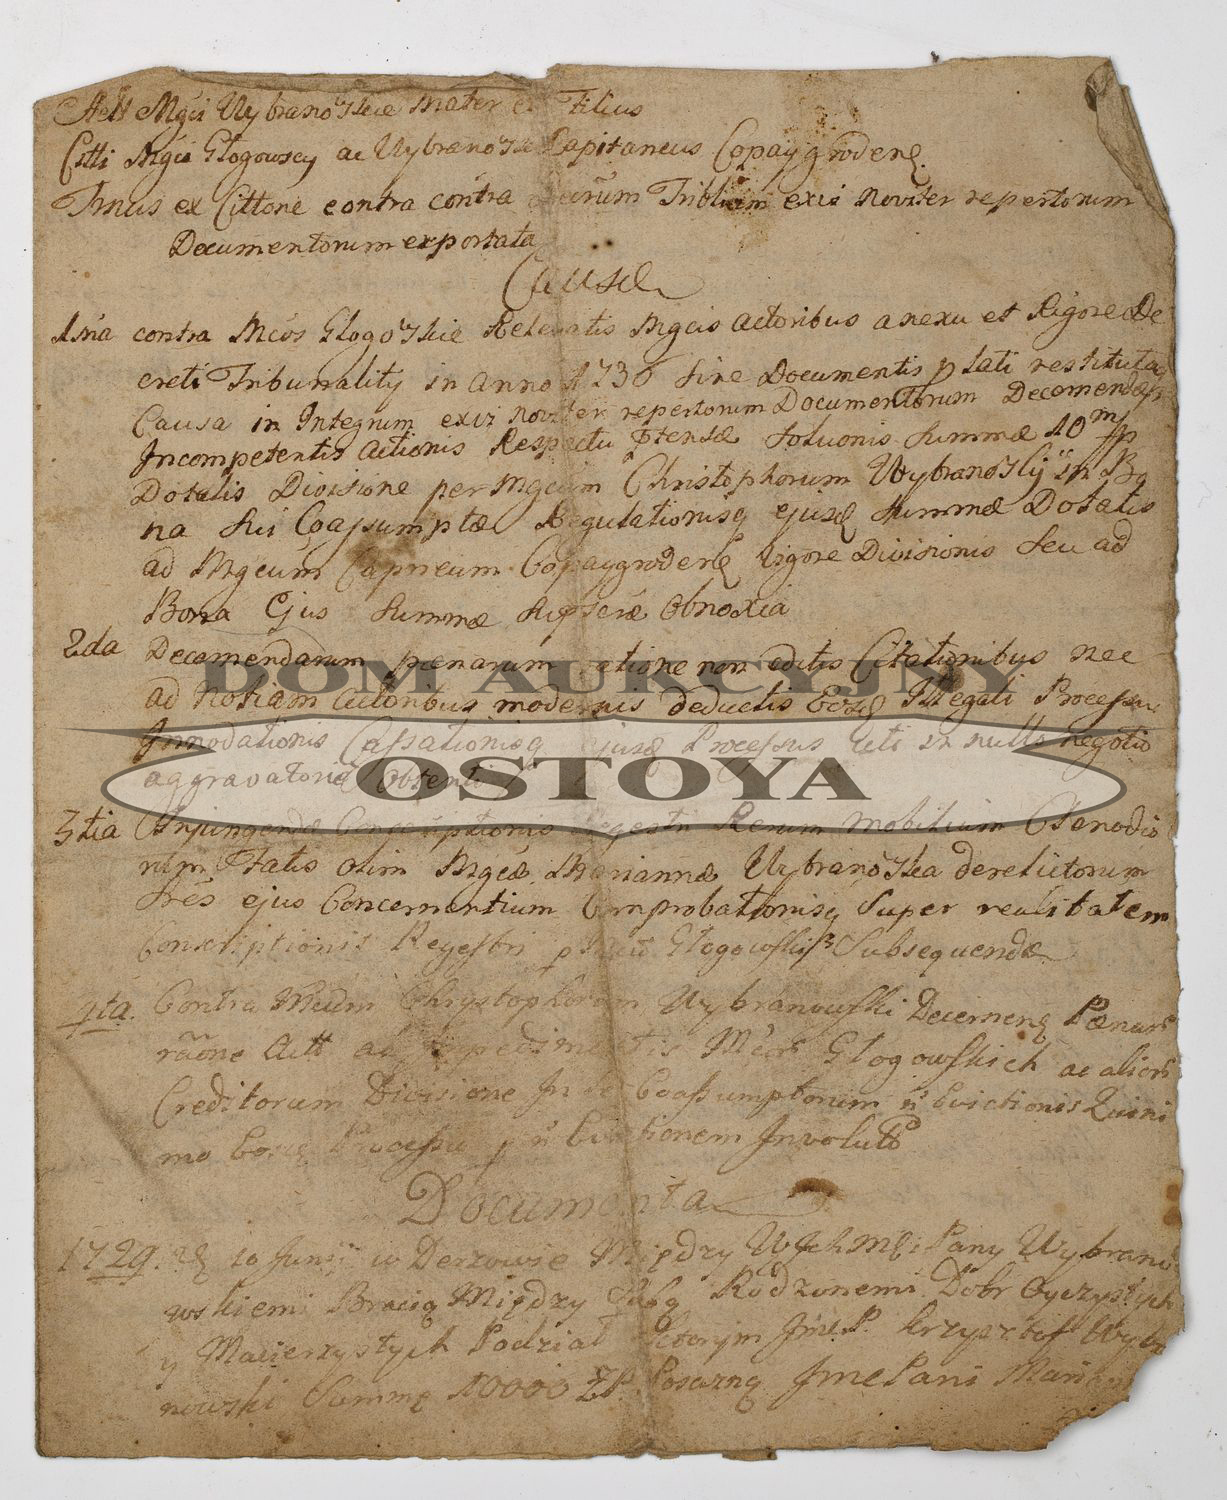 Act Mgci Wybranowskie Mater et Filius
Citti Mgci Glogowscy ac Wybranowski Capitaneus Copaygrodens
Trnus ex Cittone contra contra Tribliem exis noviter repertorum
Documentorum exportata
Causae
1ma contra Mcos Glogowskie Relevatis Mgcis Actoribus a nexu et Rigore De
creti Tribunality in anno 1736 sine Documentis lati restituta
Causa in Integrum exvi noviter repertorum Documentorum Decernendae
Incompetentis Actionis Respectu ptensae Solutionis Summae 10 m
Dotalis Divisione per Mgcum Christophorum Wybranowskij in Bo
na Sui Coassumptae Regulationisq ejusd Summae Dotalis
ad Mgcum Capneum Copaygrodens vigore Divisionis seu ad
Bona Ejus Summae Obnoxia
2da Decernendarum paenarum ratione non editis Citationibus nec
ad Notiam Actoribus modernis deductis Illegali Processu
Innodationis Cassationisq ejusd Processus uti in nullo negotio
aggravatoriae Obtenti
DOM AUKCYJNY
OSTOYA
3tia Injungendae Conscriptionis Regestri Rerum Mobilium
olim Mgcae Mariannae Wybranowska derelictorum
ejus Concernentium Comprobationisq Super realitatem
Conscriptionis Regestri Glogowskiss Subsequendae
4ta. Contra Mcum Chrystophorum Wybranowski Decernens Paenarum
raone Actt ac Impedimentis Mcor Glogowskich ac alior
Creditorum Divisione In se Coassumptorum Evictionis
Processu Evictionem Involuto
Documenta
1729. 10 Junij w Derzowie Między Pany Wybrano
wskiemi Bracią Między Sobą Rodzonemi Dobr Oyczystych
y Macierzystych Podział Ktorym Jme P. Krzysztof Wybra
nowski Summę 10000 ZP. Posazną Jme Pani Mariann